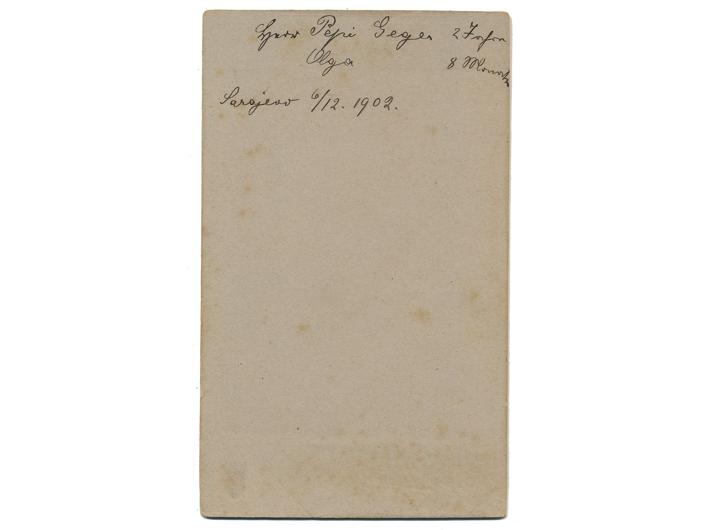 Herr Pepi Geger 2 Jahre
Olga 8 Monate
Sarajevo 6/12. 1902.